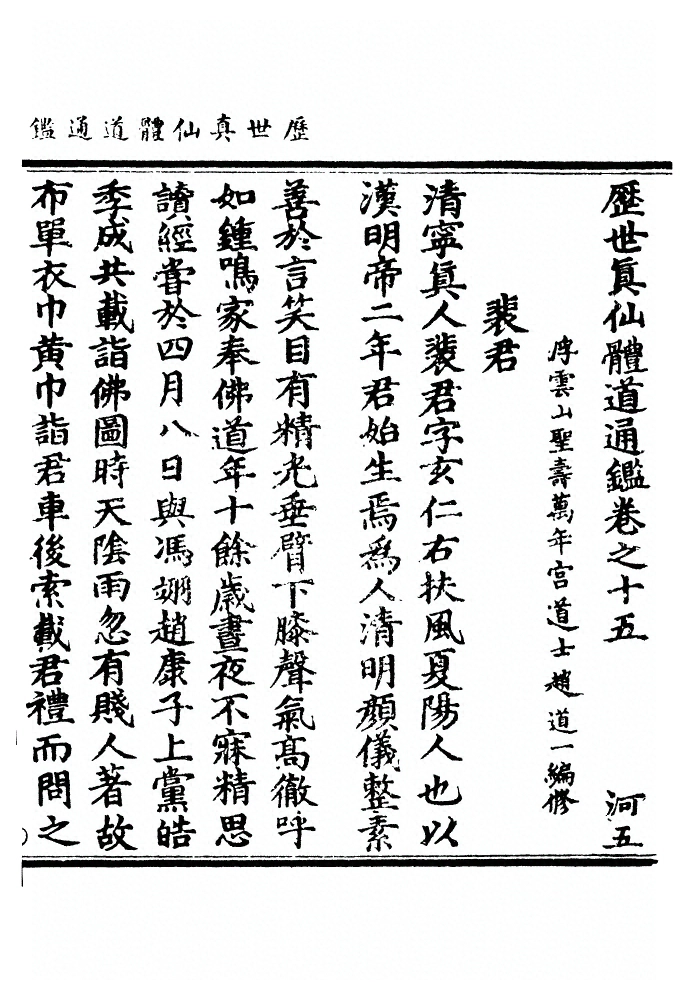 歷世真仙體道通鑑
歷世眞仙體道通鑑卷之十五　河五
浮雲山聖壽萬年宮道士趙道一編修
裴君
清寧眞人裴君字玄仁右扶風夏陽人也以
漢明帝二年君始生焉爲人清明顏儀整素
善於言笑目有精光垂臂下膝聲氣高徹呼
如鍾鳴家奉佛道年十餘歲晝夜不寐精思
讀經嘗於四月八日與馮翊趙康子上黨皓
季成共載詣佛圖時天陰雨忽有賤人著故
布單衣巾黃巾詣君車後索載君禮而問之